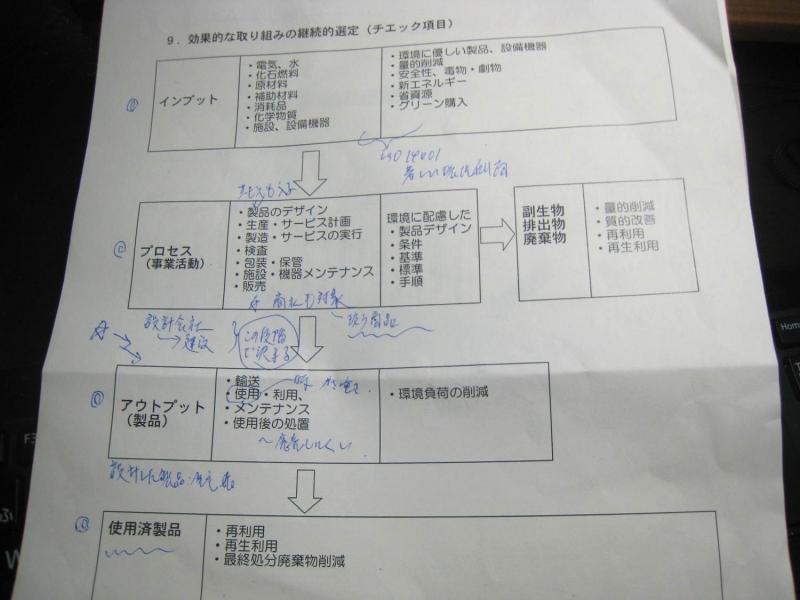 9. 効果的な取り組みの継続的選定（チェック項目）
インプット
・電気、水
・化石燃料
・原材料
・補助材料
・消耗品
・化学物質
・施設、設備機器
・環境に優しい製品、設備機器
・量的削減
・安全性、毒物・劇物
・新エネルギー
・省資源
・グリーン購入
ISO 14001
プロセス
（事業活動）
・製品のデザイン
・生産・サービス計画
・製造・サービスの実行
・検査
・包装・保管
・施設・機器メンテナンス
・販売
環境に配慮した
・製品デザイン
・条件
・基準
・標準
・手順
副生物
排出物
廃棄物
・量的削減
・質的改善
・再利用
・再生利用
商社も対象
扱う商品
設計会社
→建設
この段階
で決まる
アウトプット
（製品）
・輸送
・使用・利用、
・メンテナンス
・使用後の処置
・環境負荷の削減
使用済製品
・再利用
・再生利用
・最終処分廃棄物削減
F3
Home